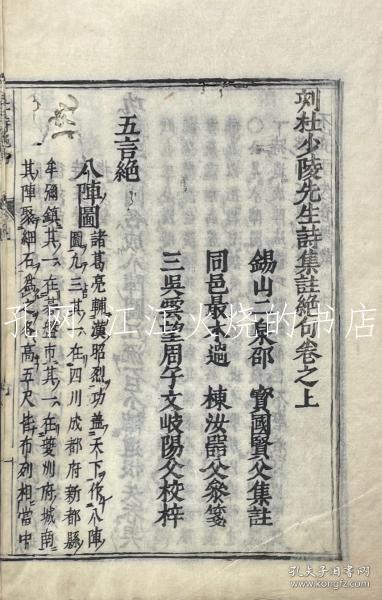 刻杜少陵先生詩集註絶句卷之上
錫山二泉邵　寳國賢父集註
同邑最木過　棟汝器父叅箋
三吳雲望周子文岐陽父校梓
五言絶
八陣圖
諸葛亮輔漢昭烈功盖天下作八陣
圖凢三其一在四川成都府新都縣
牟彌鎮其一在其一在夔州府城南
其陣聚細石爲之各高五尺皆布列相當中
孔网江江火烧的书摊
孔夫子旧书网